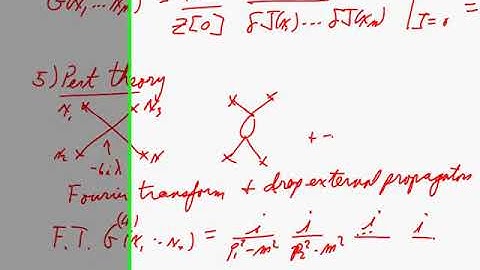 G(x₁ ... xₙ) = 1/Z[0] δ.../δJ(x₁) ... δJ(xₙ) |J=0 =
5) Pert theory
x₁ x₃
x₂ x
-6iλ
+ -
Fourier transform + drop external propagators
F.T. G⁽⁴⁾(x₁ ... x₄) = i/(p₁²-m²) i/(p₂²-m²) i i